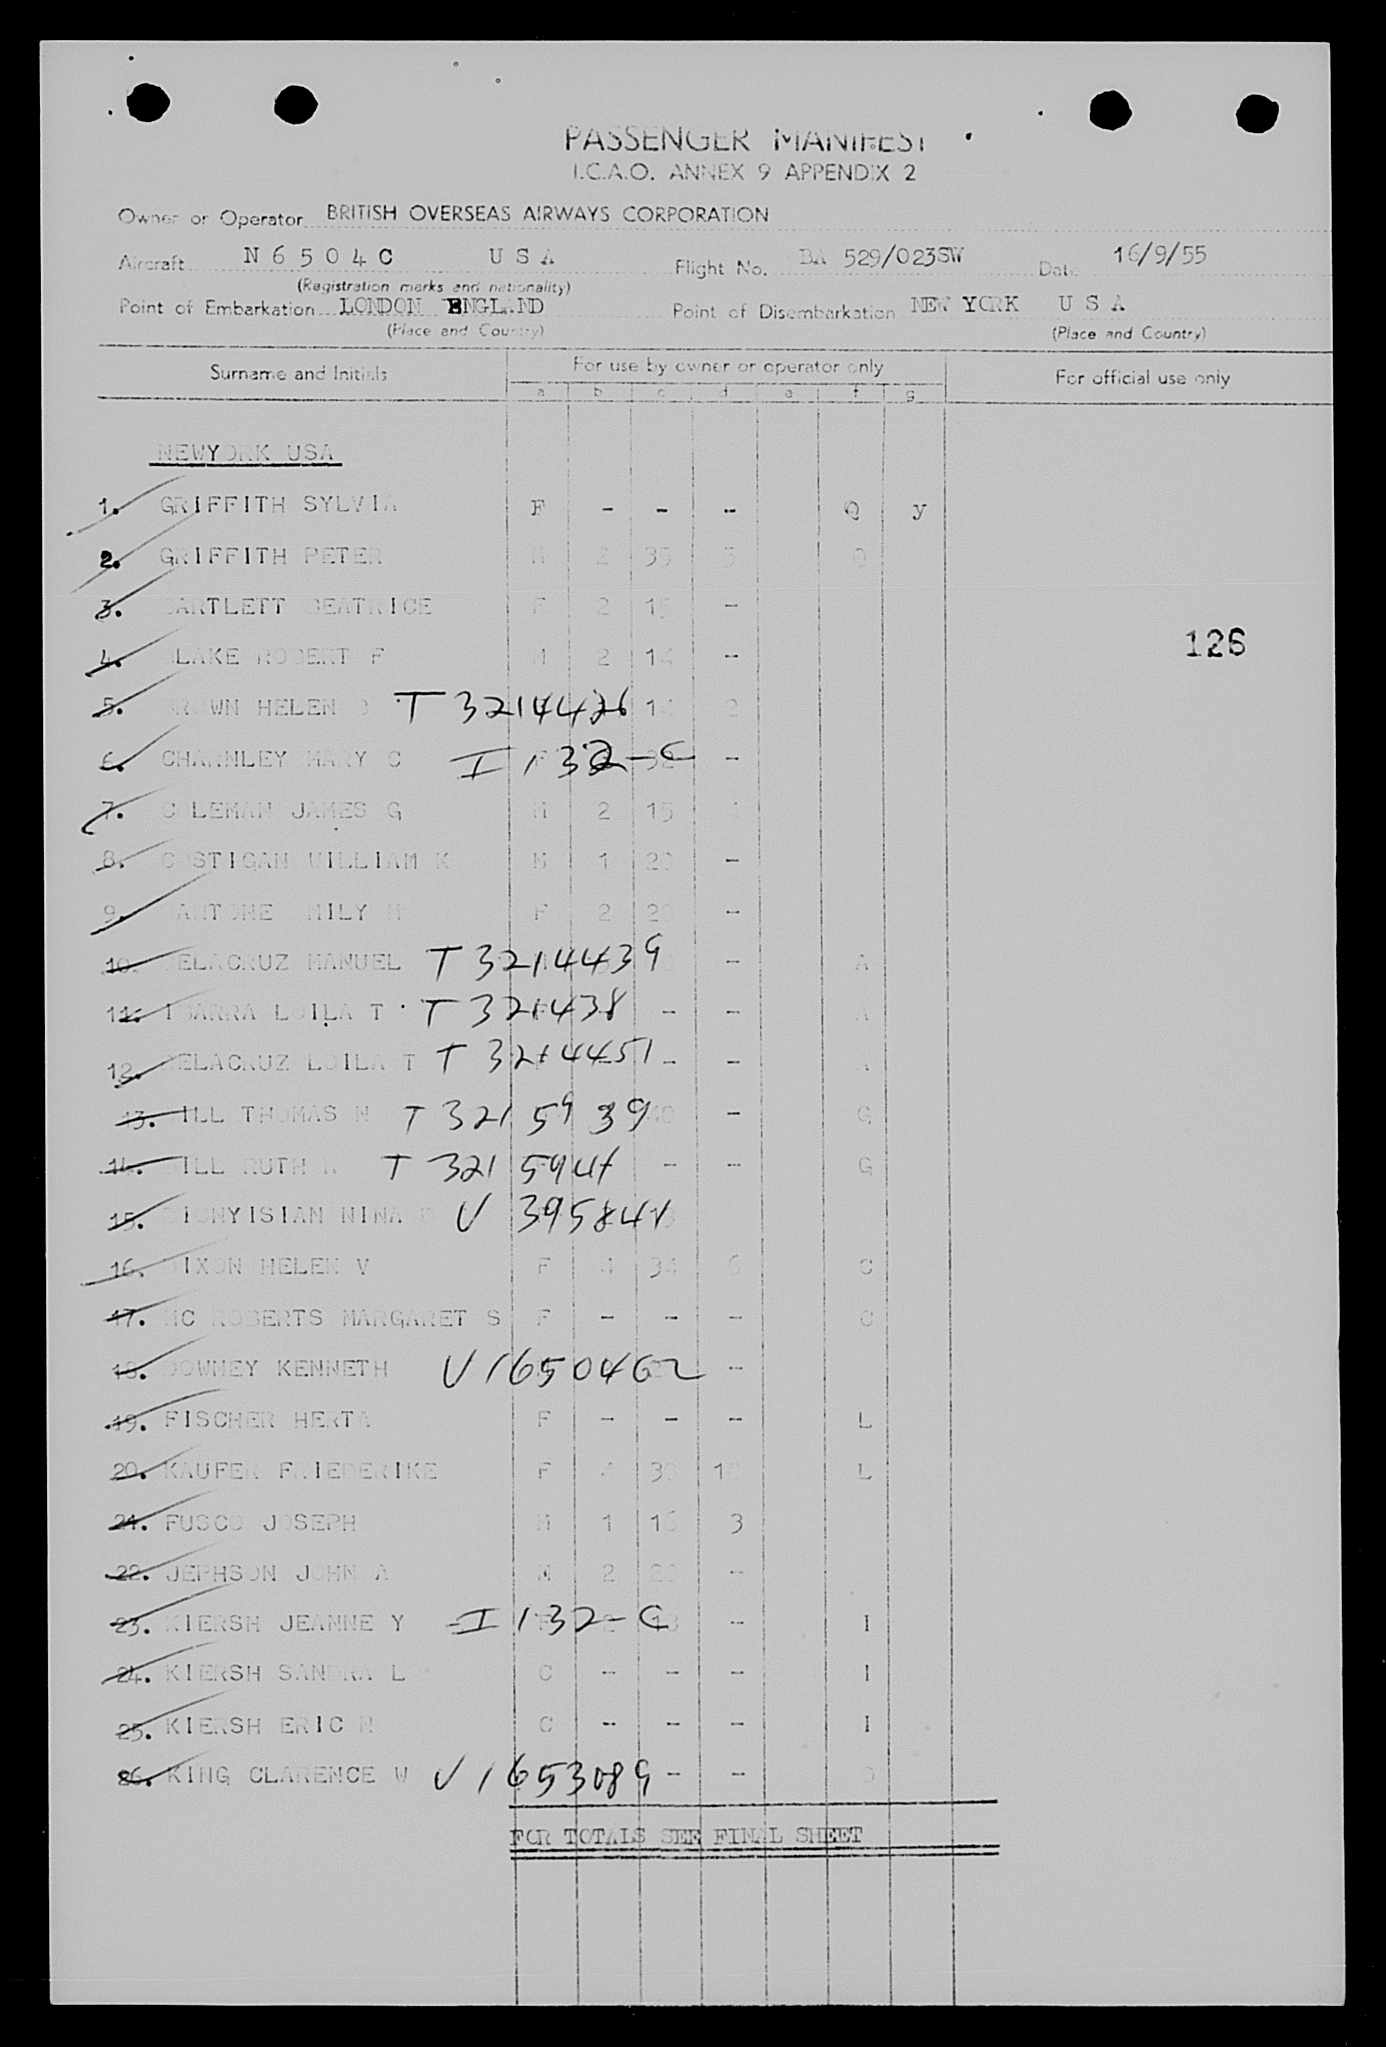 PASSENGER MANIFEST
I.C.A.O. ANNEX 9 APPENDIX 2
Owner or Operator BRITISH OVERSEAS AIRWAYS CORPORATION
Aircraft N6504C USA Flight No. BA 529/023SW Date 16/9/55
(Registration marks and nationality)
Point of Embarkation LONDON ENGLAND Point of Disembarkation NEW YORK USA
(Place and Country) (Place and Country)
Surname and Initials For use by owner or operator only For official use only
a b c d e f g
NEWYORK USA
1. GRIFFITH SYLVIA F - - - Q y
2. GRIFFITH PETER M 2 39 5 Q
3. BARTLETT BEATRICE F 2 15 -
126
4. BLAKE ROBERT F M 2 14 -
5. BROWN HELEN T3214426 2
6. CHARNLEY MARY C I 132-C -
7. COLEMAN JAMES G M 2 15
8. COSTIGAN WILLIAM K M 1 20 -
9. EMILY M F 2 20 -
10. DELACRUZ MANUEL T3214439 - A
11. IBARRA LOILA T T321438 - - A
12. DELACRUZ LOILA T T3214451 - -
13. HILL THOMAS T 3215939 - G
14. HILL RUTH T 321594 - - G
15. DIONYISIAN NINA V 395841
16. DIXON HELEN V F 4 34 6 C
17. MC ROBERTS MARGARET S F - - - C
18. DOWNEY KENNETH V1650462 -
19. FISCHER HERTA F - - - L
20. KAUFER FRIEDERIKE F 4 L
21. FUSCO JOSEPH M 1 16 3
22. JEPHSON JOHN A M 2 20 -
23. KIERSH JEANNE Y I 132-C - I
24. KIERSH SANDRA L C - - - I
25. KIERSH ERIC C - - - I
26. KING CLARENCE W V1653089 - -
FOR TOTALS SEE FINAL SHEET